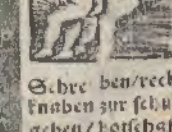 Schre ben/rech
knaben zur schu
gehen/botschaf